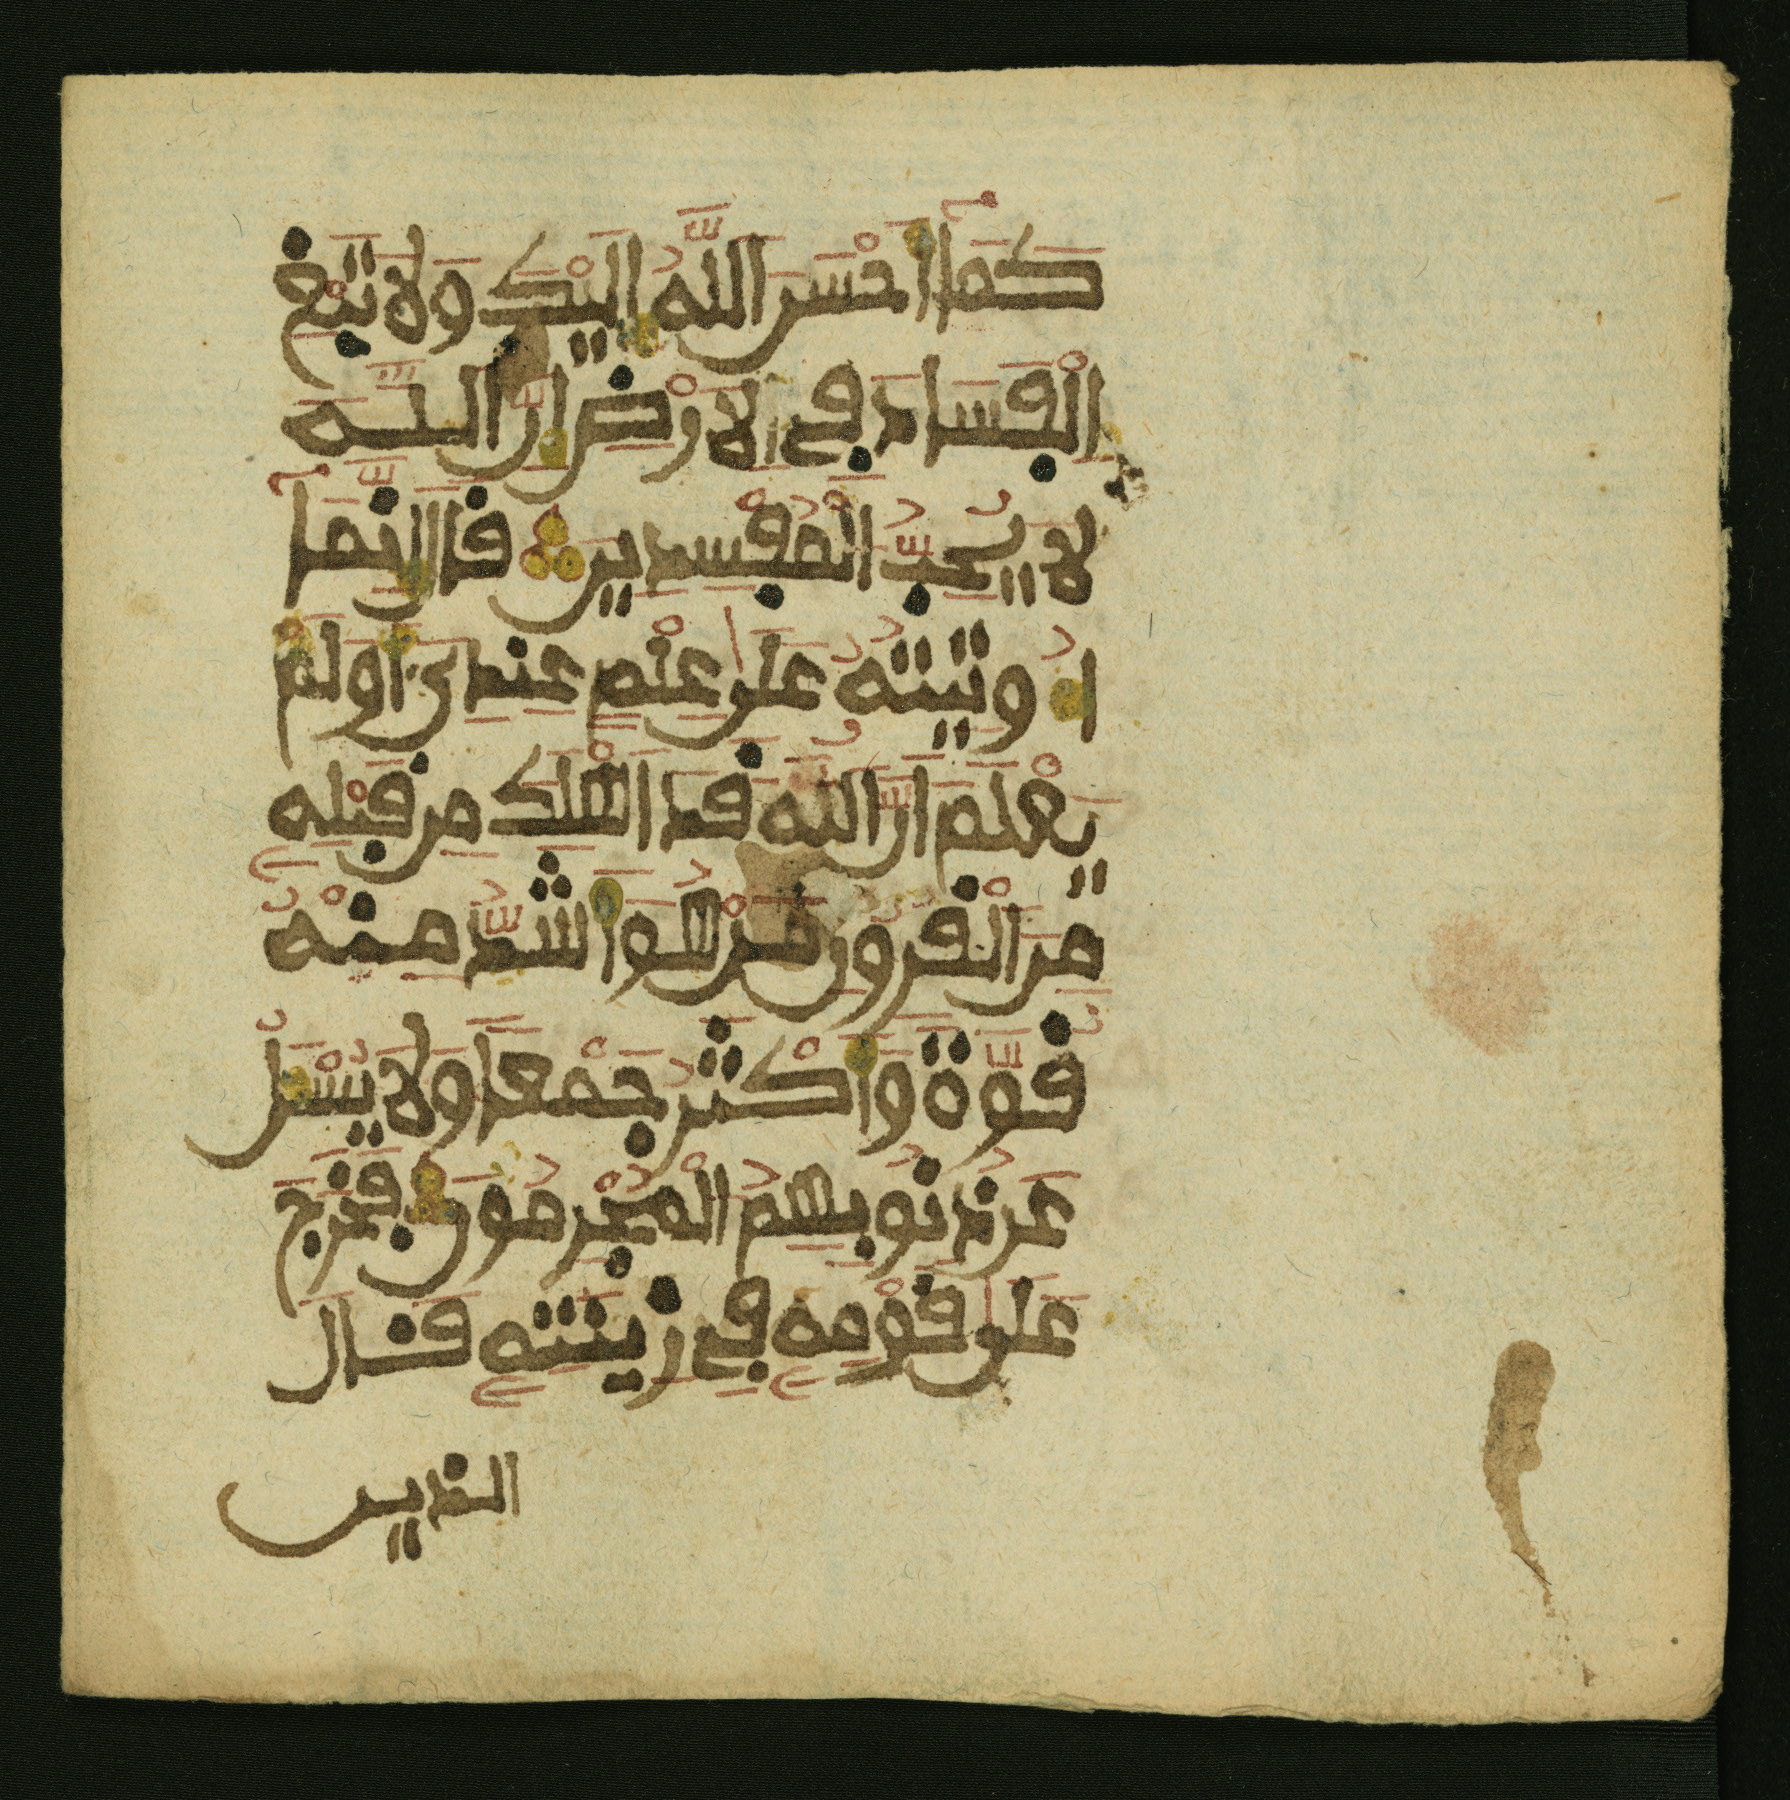 كَمَآ أَحْسَنَ اللَّهُ إِلَيْكَ وَلَا تَبْغِ
الْفَسَادَ فِى الَارْضِ إِنَّ اللَّهَ
لَا يُحِبُّ الْمُفْسِدِينَ قَالَ إِنَّمَآ
أُوتِيتُهُ عَلَى عِلْمٍ عِندِى أَوَلَمْ
يَعْلَمَ انَّ اللَّهَ قَدَ اهْلَكَ مِن قَبْلِهِ
مِنَ الْقُرُونِ مَنْ هُوَ أَشَدُّ مِنْهُ
قُوَّةً وَأَكْثَرُ جَمْعًا وَلَا يُسْـَٔلُ
عَن ذُنُوبِهِمُ الْمُجْرِمُونَ فَخَرَجَ
عَلَى قَوْمِهِ فِى زِينَتِهِ قَالَ
الذين